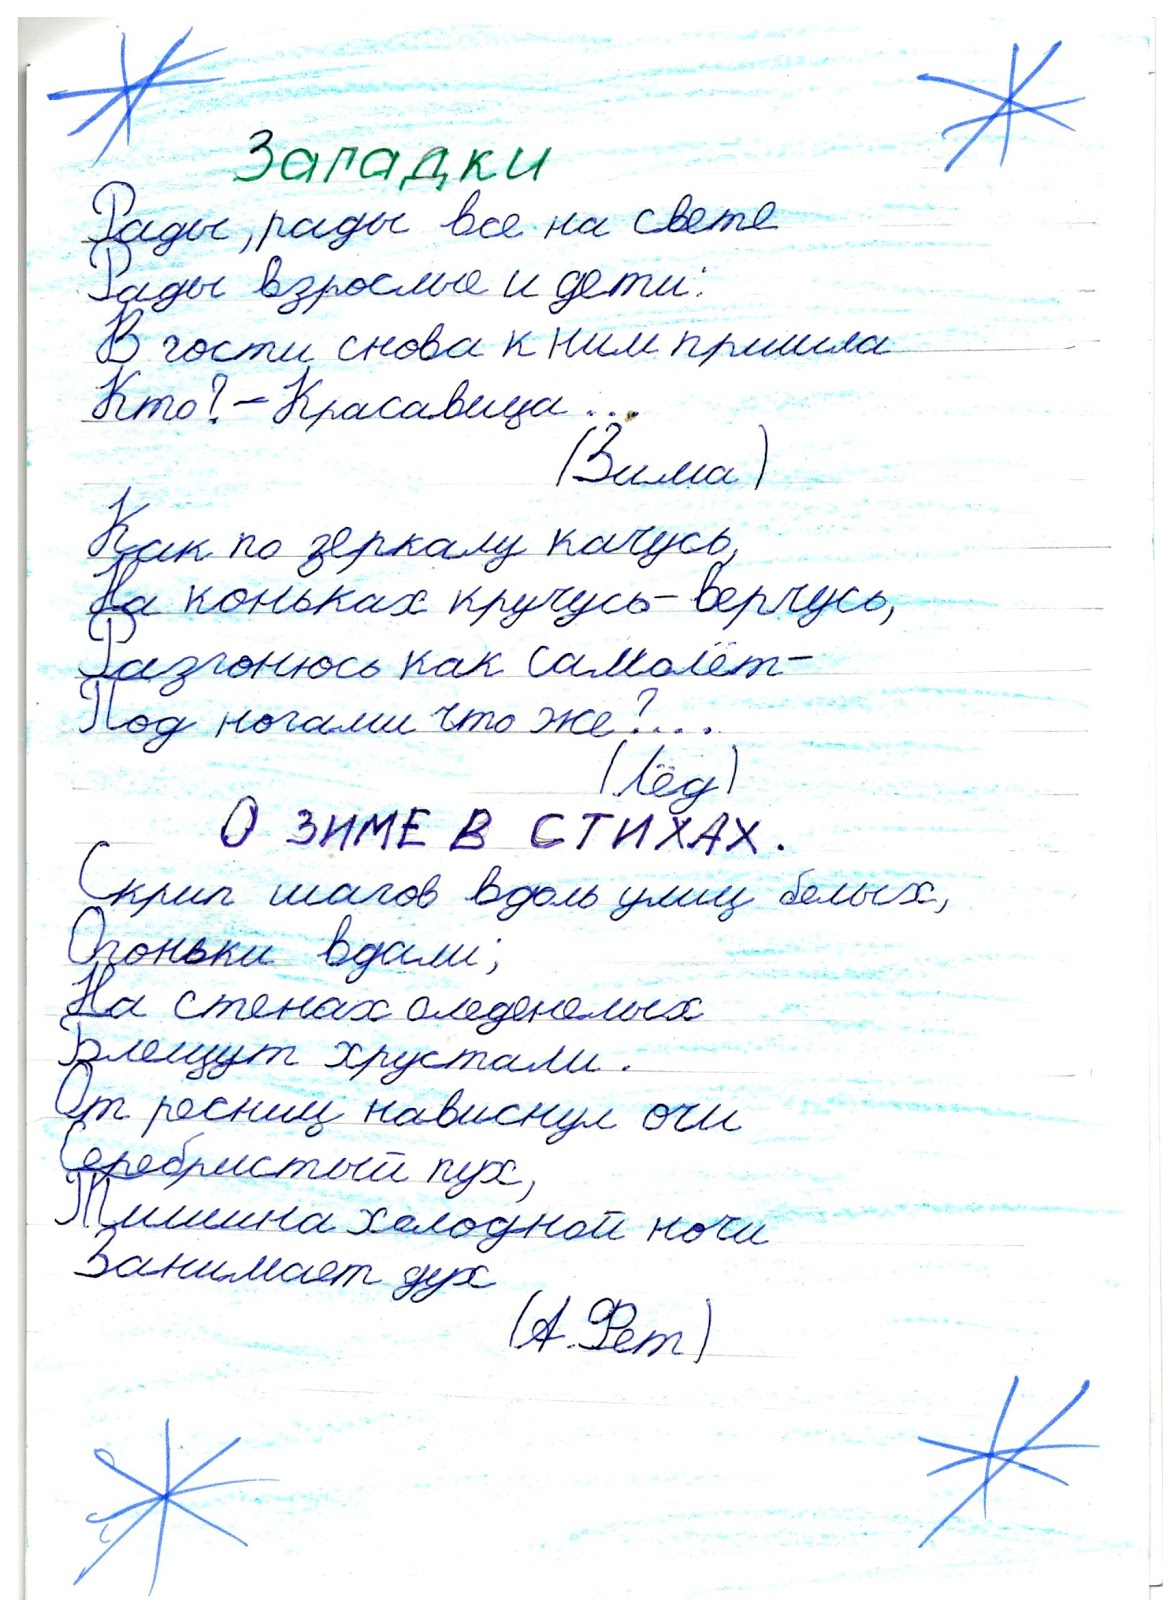 Загадки
Рады, рады все на свете
Рады взрослые и дети:
В гости снова к ним пришла
Кто? – Красавица ...
(Зима)
Как по зеркалу качусь,
На коньках кручусь – верчусь,
Разгонюсь как самолёт –
Под ногами что же?....
(Лёд)
О ЗИМЕ В СТИХАХ.
Скрип шагов вдоль улиц белых,
Огоньки вдали;
На стенах оледенелых
Блещут хрустали.
От ресниц нависнул очи
Серебристый пух,
Тишина холодной ночи
Занимает дух
(А. Фет)